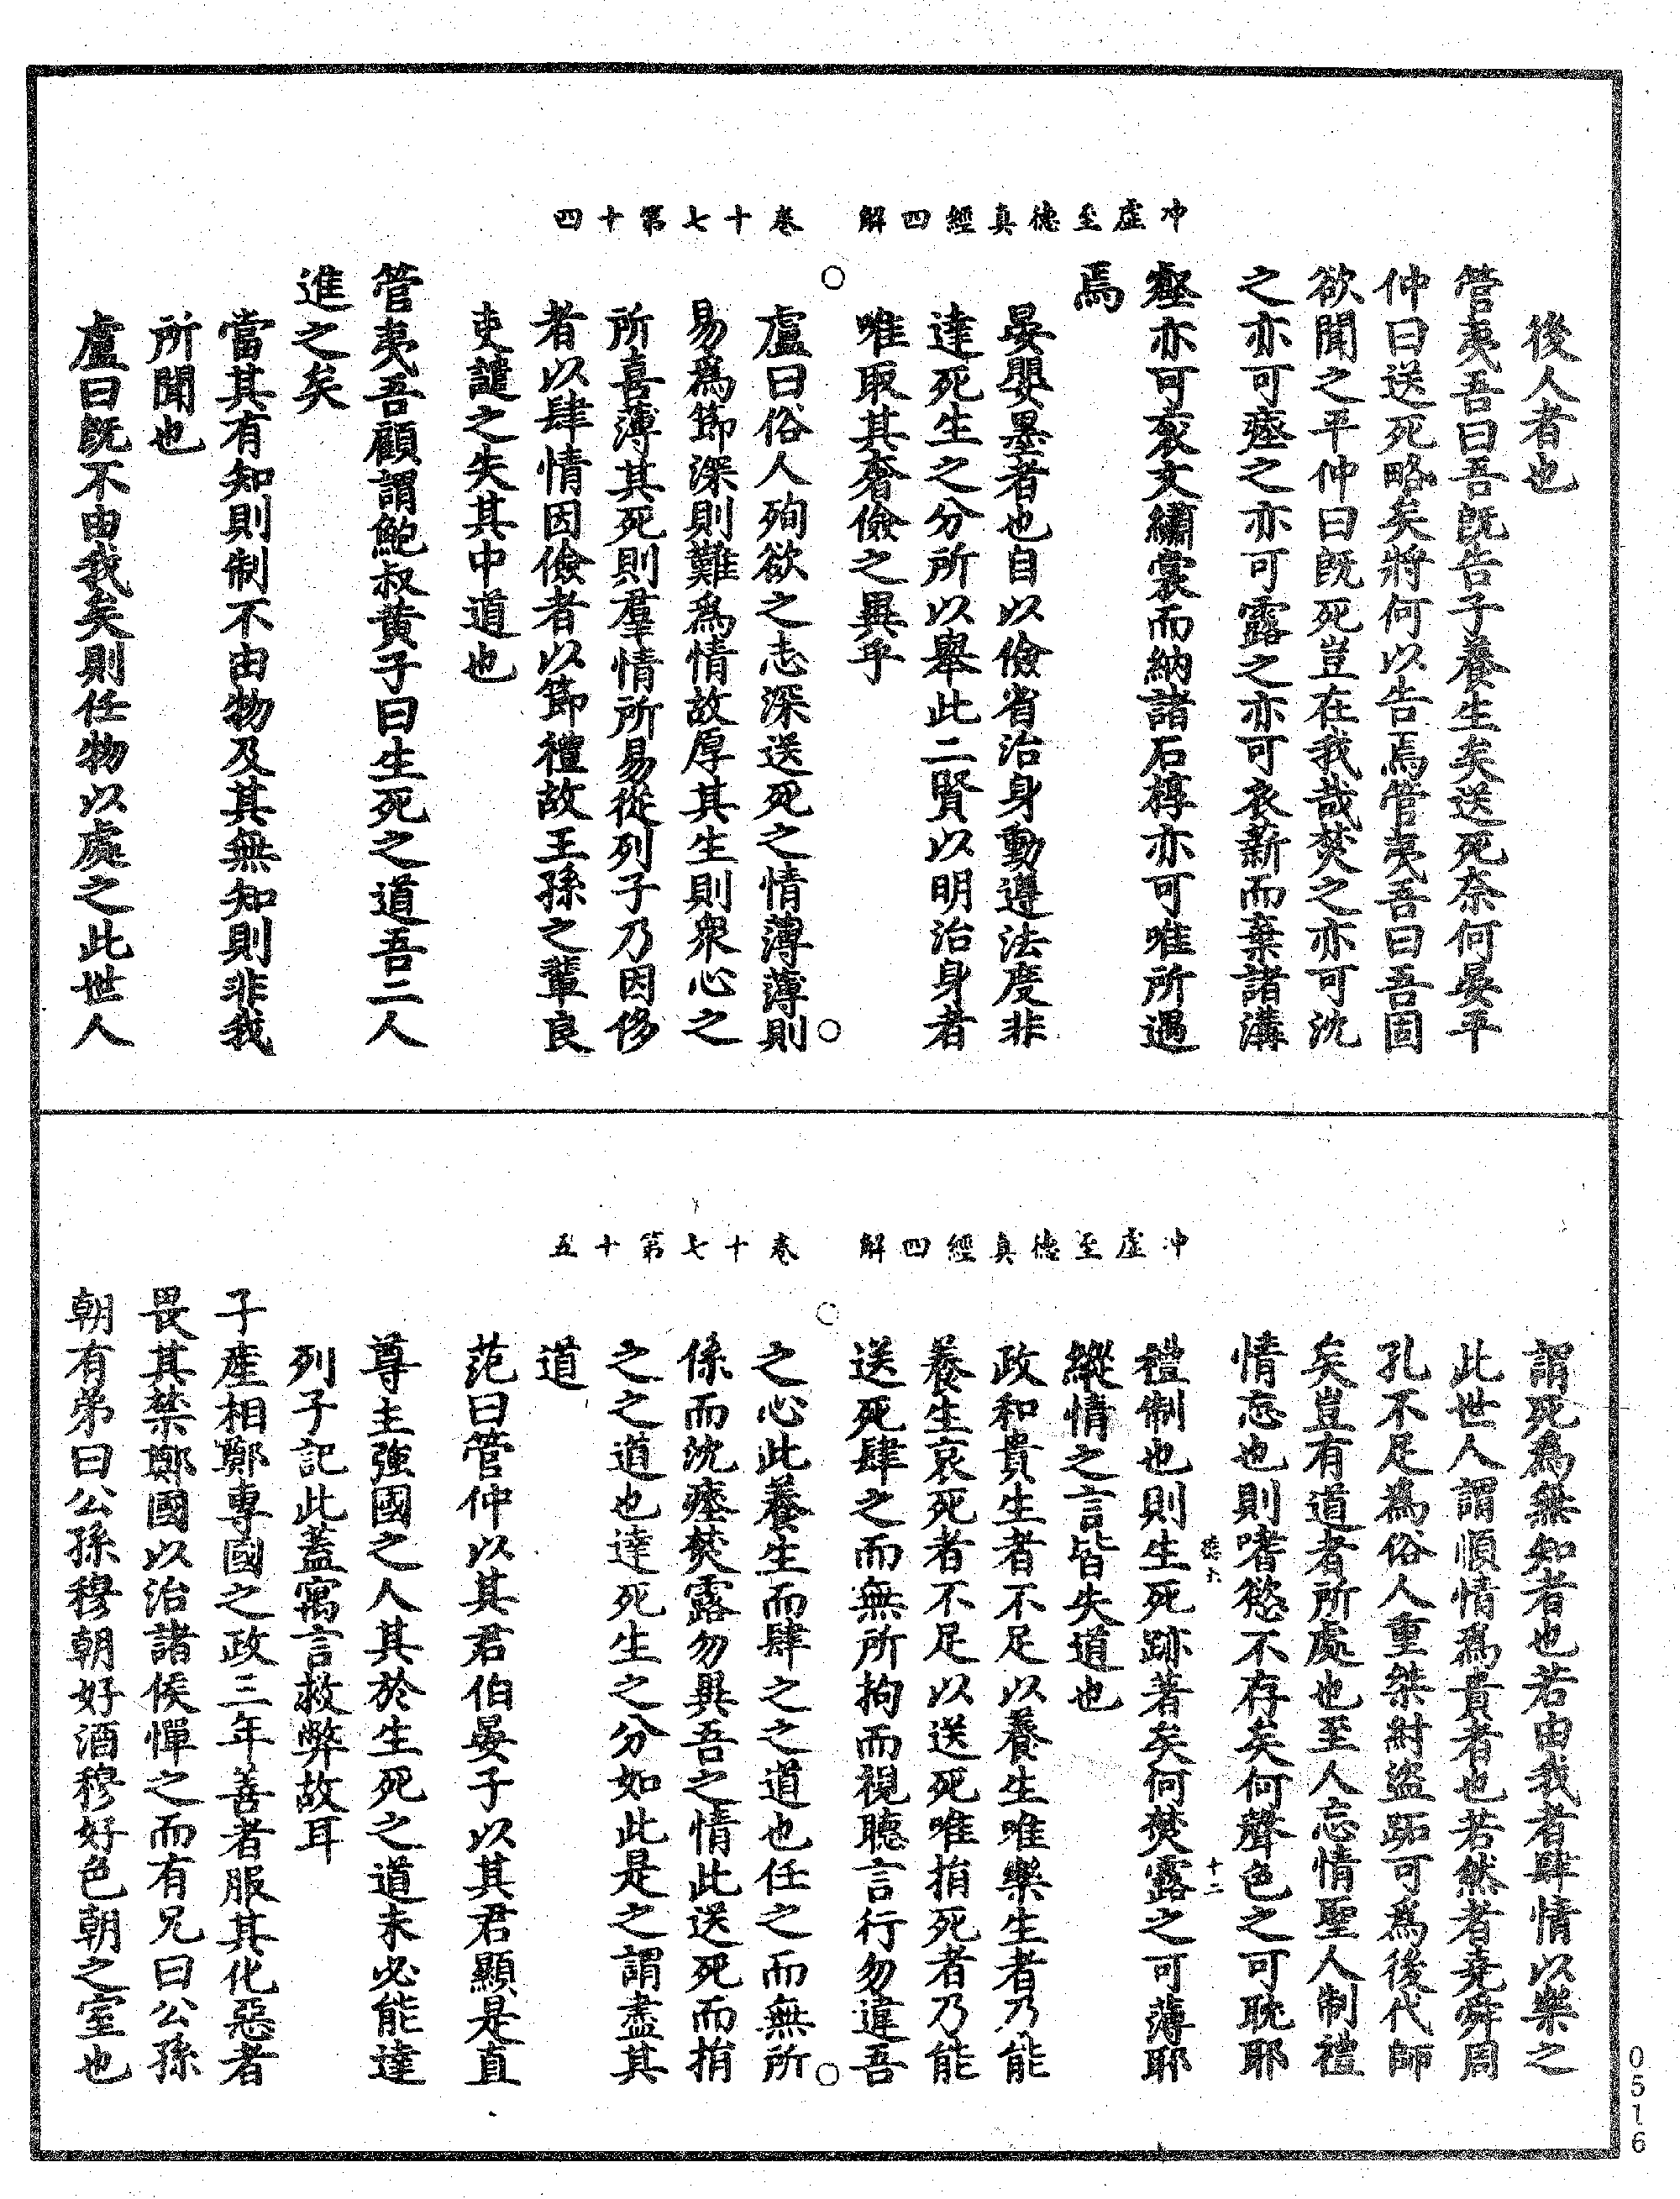 冲虛至德真經四解　卷十七第十四
後人者也
管夷吾曰吾既告子養生矣送死奈何晏平
仲曰送死略矣將何以告焉管夷吾曰吾固
欲聞之平仲曰既死豈在我哉焚之亦可沈
之亦可瘞之亦可露之亦可衣薪而棄諸溝
壑亦可衮文繡裳而納諸石椁亦可唯所遇
焉
晏嬰墨者也自以儉省治身動遵法度非
達死生之分所以舉此二賢以明治身者
唯取其奢儉之異乎
盧曰俗人殉欲之志深送死之情薄薄則
易爲節深則難爲情故厚其生則衆心之
所喜薄其死則羣情所易從列子乃因侈
者以肆情因儉者以節禮故王孫之輩良
吏讉之失其中道也
管夷吾顧謂鮑叔黄子曰生死之道吾二人
進之矣
當其有知則制不由物及其無知則非我
所聞也
盧曰既不由我矣則任物以處之此世人
冲虛至德真經四解　卷十七第十五
謂死爲無知者也若由我者肆情以樂之
此世人謂順情爲貴者也若然者堯舜周
孔不足爲俗人重桀紂盜跖可爲後代師
矣豈有道者所處也至人忘情聖人制禮
情忘也則嗜慾不存矣何聲色之可耽耶
十二
禮制也則生死跡著矣何焚露之可薄耶
縱情之言皆失道也
政和貴生者不足以養生唯樂生者乃能
養生哀死者不足以送死唯捐死者乃能
送死肆之而無所拘而視聽言行勿違吾
之心此養生而肆之之道也任之而無所
係而沈瘞焚露勿異吾之情此送死而捐
之之道也達死生之分如此是之謂盡其
道
范曰管仲以其君伯晏子以其君顯是直
尊主強國之人其於生死之道未必能達
列子記此蓋寓言救弊故耳
子産相鄭專國之政三年善者服其化惡者
畏其禁鄭國以治諸侯憚之而有兄曰公孫
朝有弟曰公孫穆朝好酒穆好色朝之室也
0516